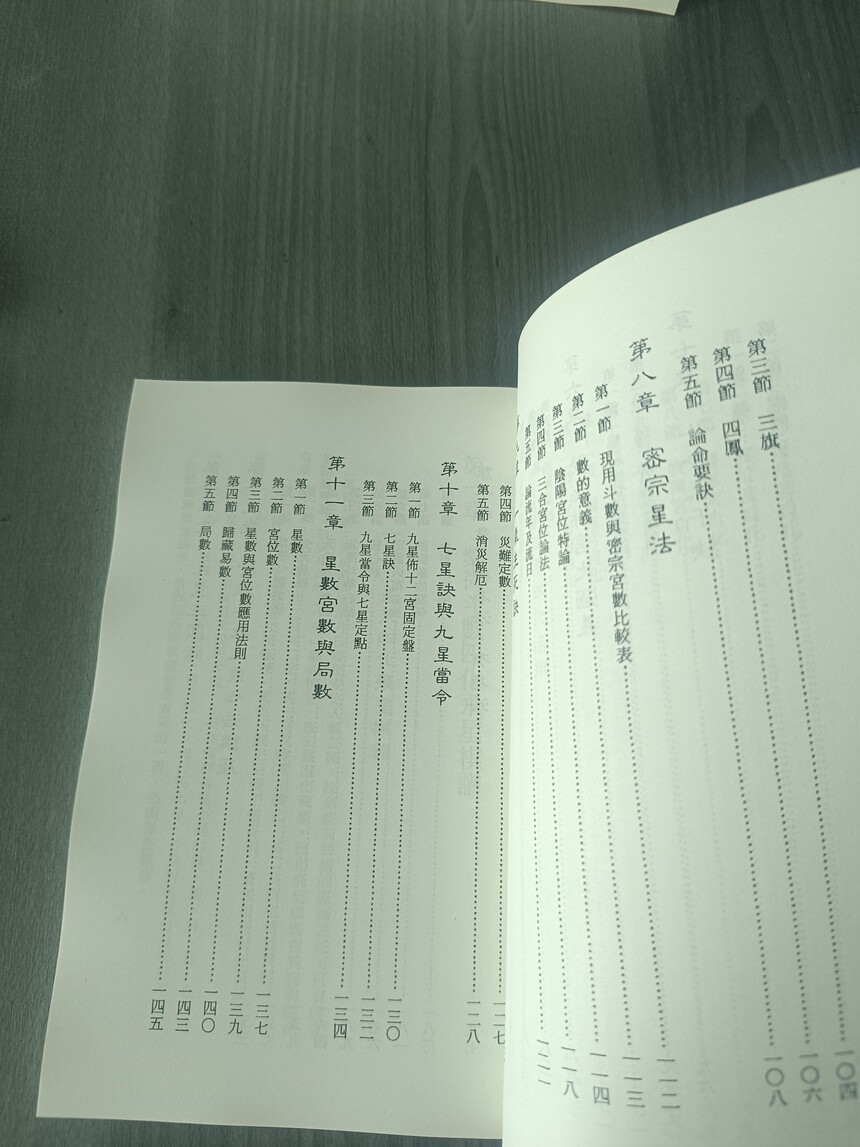 第三節 三旗……一〇四
第四節 四鳳……一〇六
第五節 論命要訣……一〇八
第八章 密宗星法
第一節 現用斗數與密宗宮數比較表……一一二
第二節 數的意義……一一三
第三節 陰陽宮位特論……一一四
第四節 三合宮位論法……一一八
第五節 論流年及流日……一二一
第四節 災難定數……一二七
第五節 消災解厄……一二八
第十章 七星訣與九星當令
第一節 九星佈十二宮固定盤……一三〇
第二節 七星訣……一三二
第三節 九星當令與七星定點……一三四
第十一章 星數宮數與局數
第一節 星數……一三七
第二節 宮位數……一三九
第三節 星數與宮位數應用法則……一四〇
第四節 歸藏易數……一四三
第五節 局數……一四五